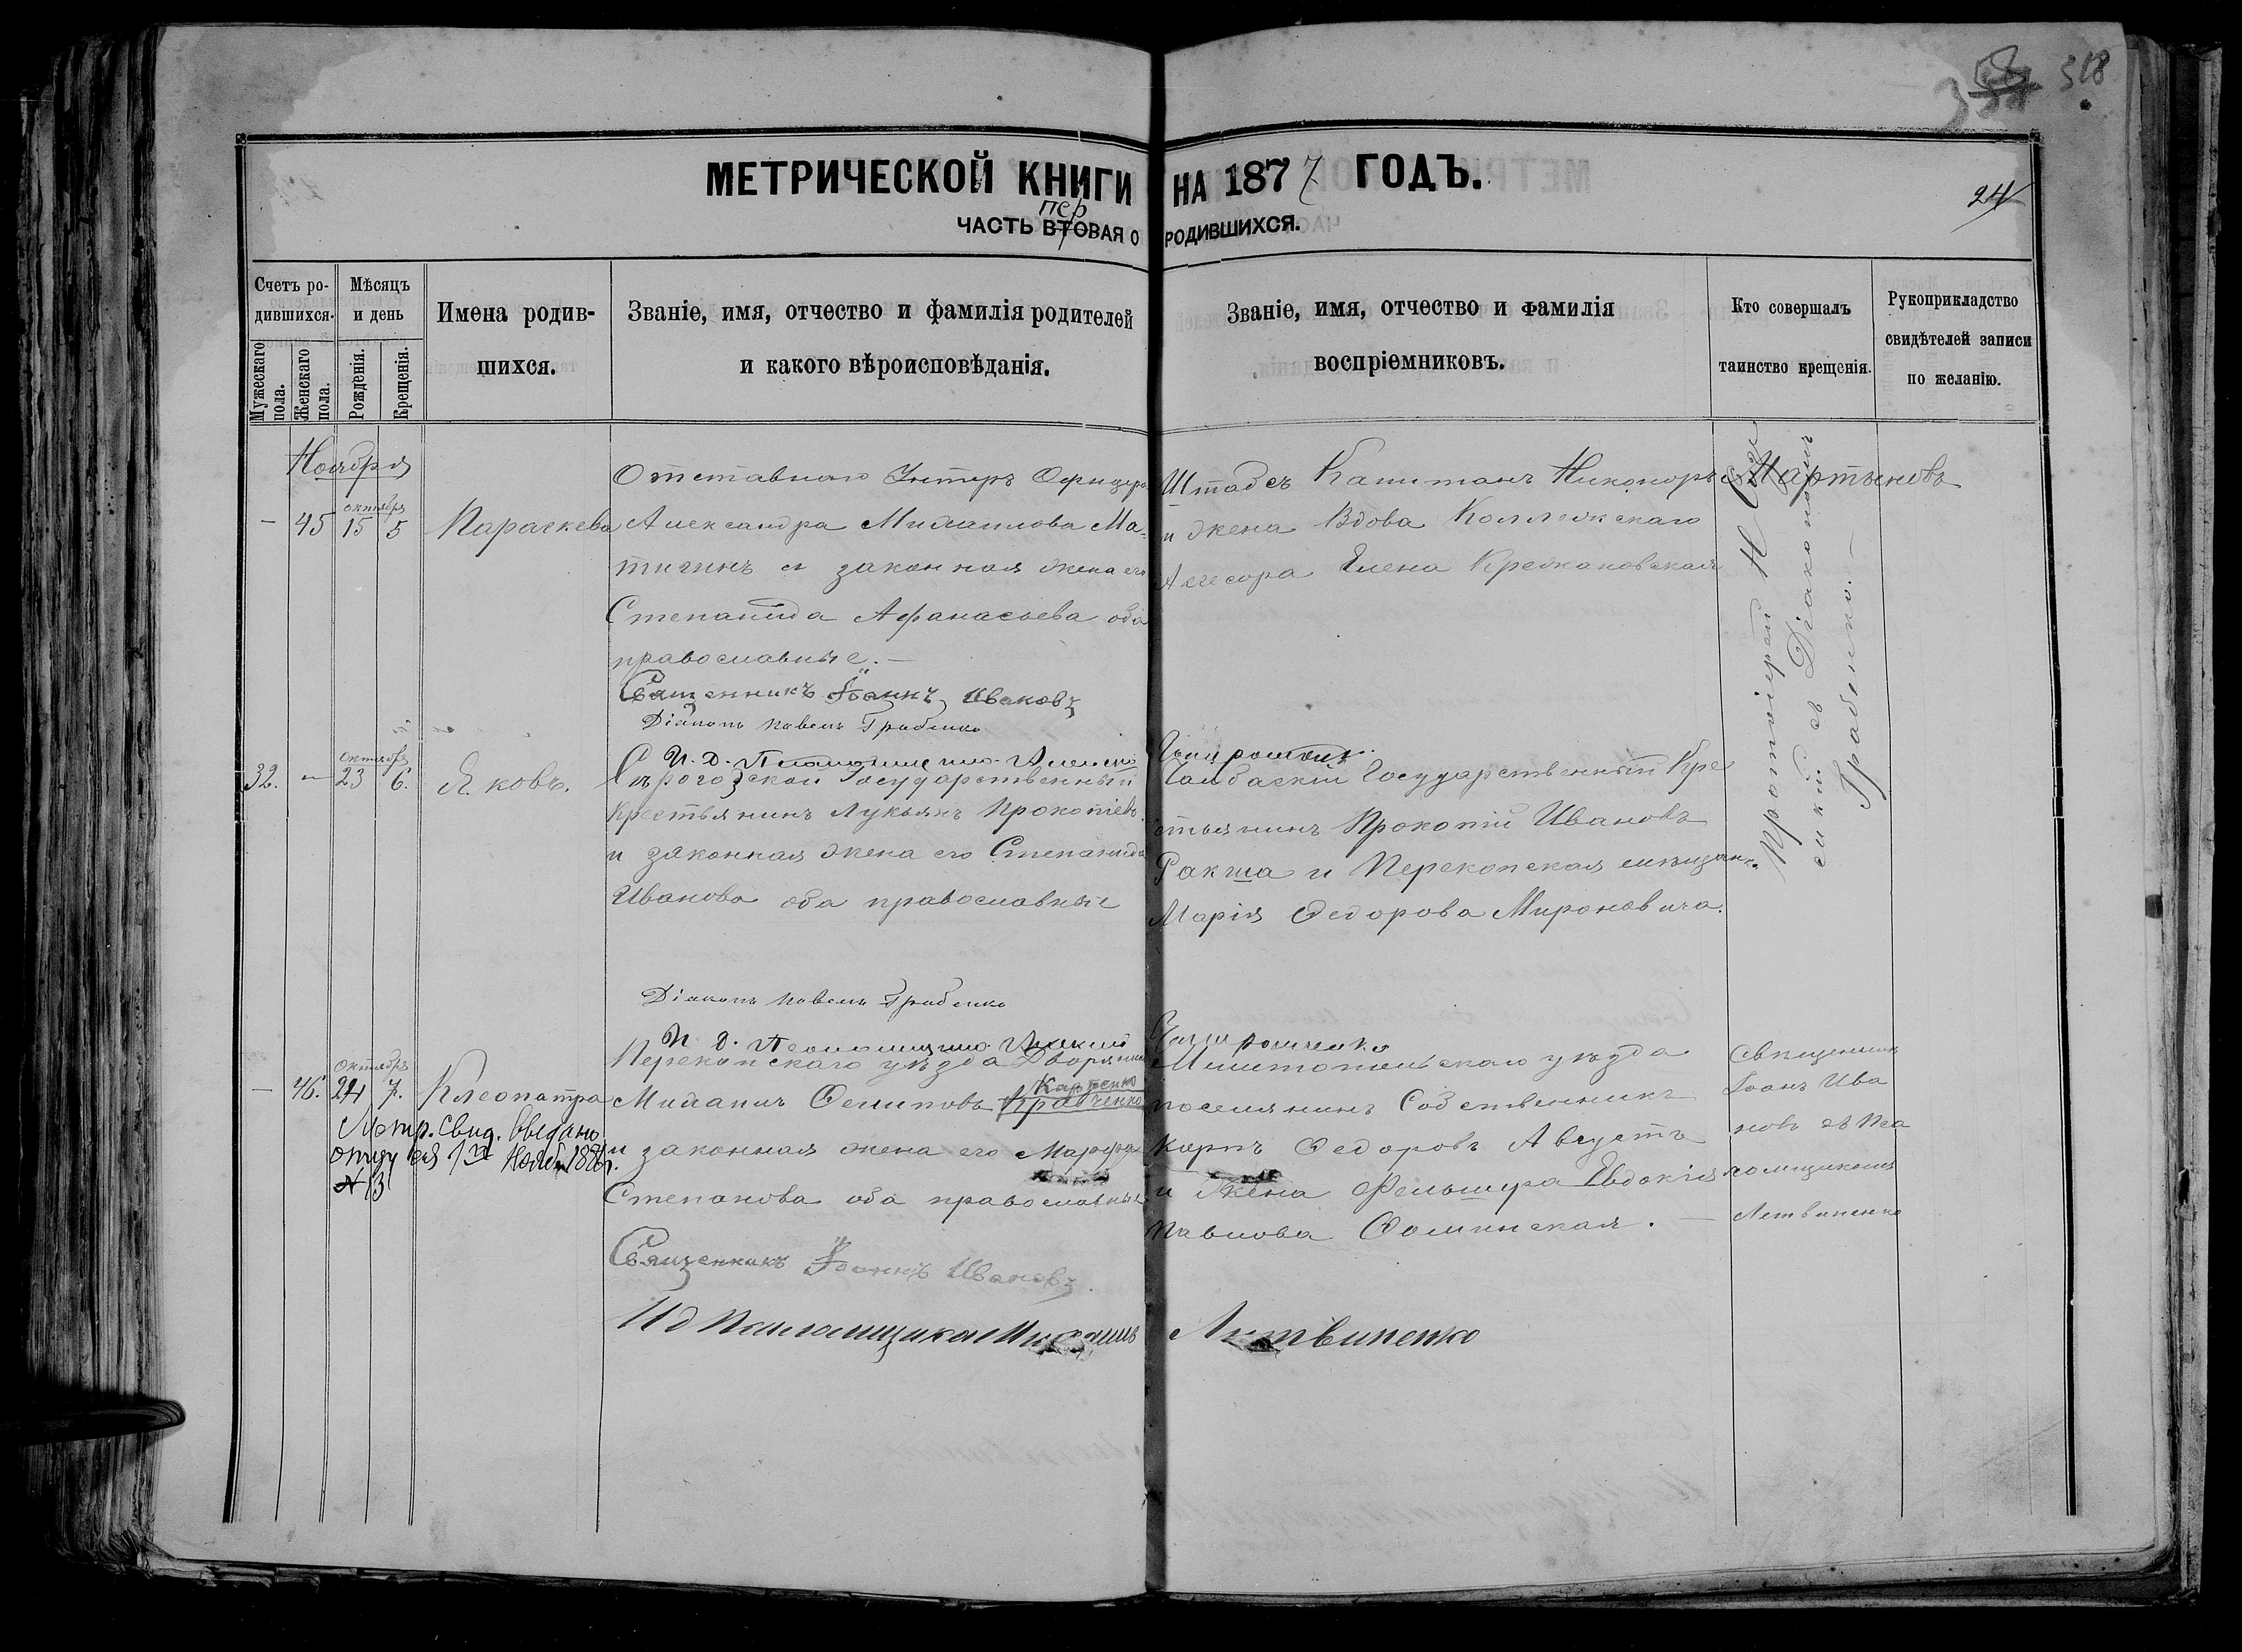 318
МЕТРИЧЕСКОЙ КНИГИ НА 1877 ГОДЪ.
24
пер
ЧАСТЬ ВТОВАЯ О РОДИВШИХСЯ.
Счетъ родившихся.
Мужескаго пола.
Женскаго пола.
Мѣсяцъ и день
Рожденія.
Крещенія.
Имена родившихся.
Званіе, имя, отчество и фамилія родителей
и какого вѣроисповѣданія.
Званіе, имя, отчество и фамилія
воспріемниковъ.
Кто совершалъ
таинство крещенія.
Рукоприкладство
свидѣтелей записи
по желанію.
Ноября
— 45 октября 15 5 Параскева
Отставного Унтеръ Офицера
Александра Михаилова Ма-
тигинъ и законная жена его
Степанида Афанасьева оба
православные. —
Священникъ Іоаннъ Ивановъ
Діаконъ Павелъ Грабенко
Штабсъ Капитанъ Никоноръ Мартыновъ
и жена Вдова Коллежскаго
Асесора Елена
Протоіерей Н
съ Діакономъ
Грабенко. —
32. — Октября 23 6. Яковъ.
Сѣрогозской Государственный
крестьянинъ Лукьянъ Прокопіевъ
и законная жена его Степанида
Иванова оба православные
Діаконъ Павелъ Грабенко
Государственный Кре
стьянинъ Прокопій Ивановъ
Ракша и Перекопская мѣщанк.
Марія Федорова Мироновича.
— 46. Октября 24 7. Клеопатра
Метр. свид. выдано
отцу ея 1го Нояб. 188
№ 13
Перекопскаго уѣзда Дворянин
Карпенко
Михаилъ Осиповъ Кравченко
и законная жена его Марфа
Степанова оба православные
Священникъ Іоаннъ Ивановъ
Мелитопольскаго уѣзда
поселянинъ Собственникъ
Карпъ Федоровъ Августъ
и жена Фельшера Евдокія
Павлова Фоминская. —
Священникъ
Іоанъ Ива
новъ съ Пса
ломщикомъ
Летвиненко
И д Псаломщика Литвиненко